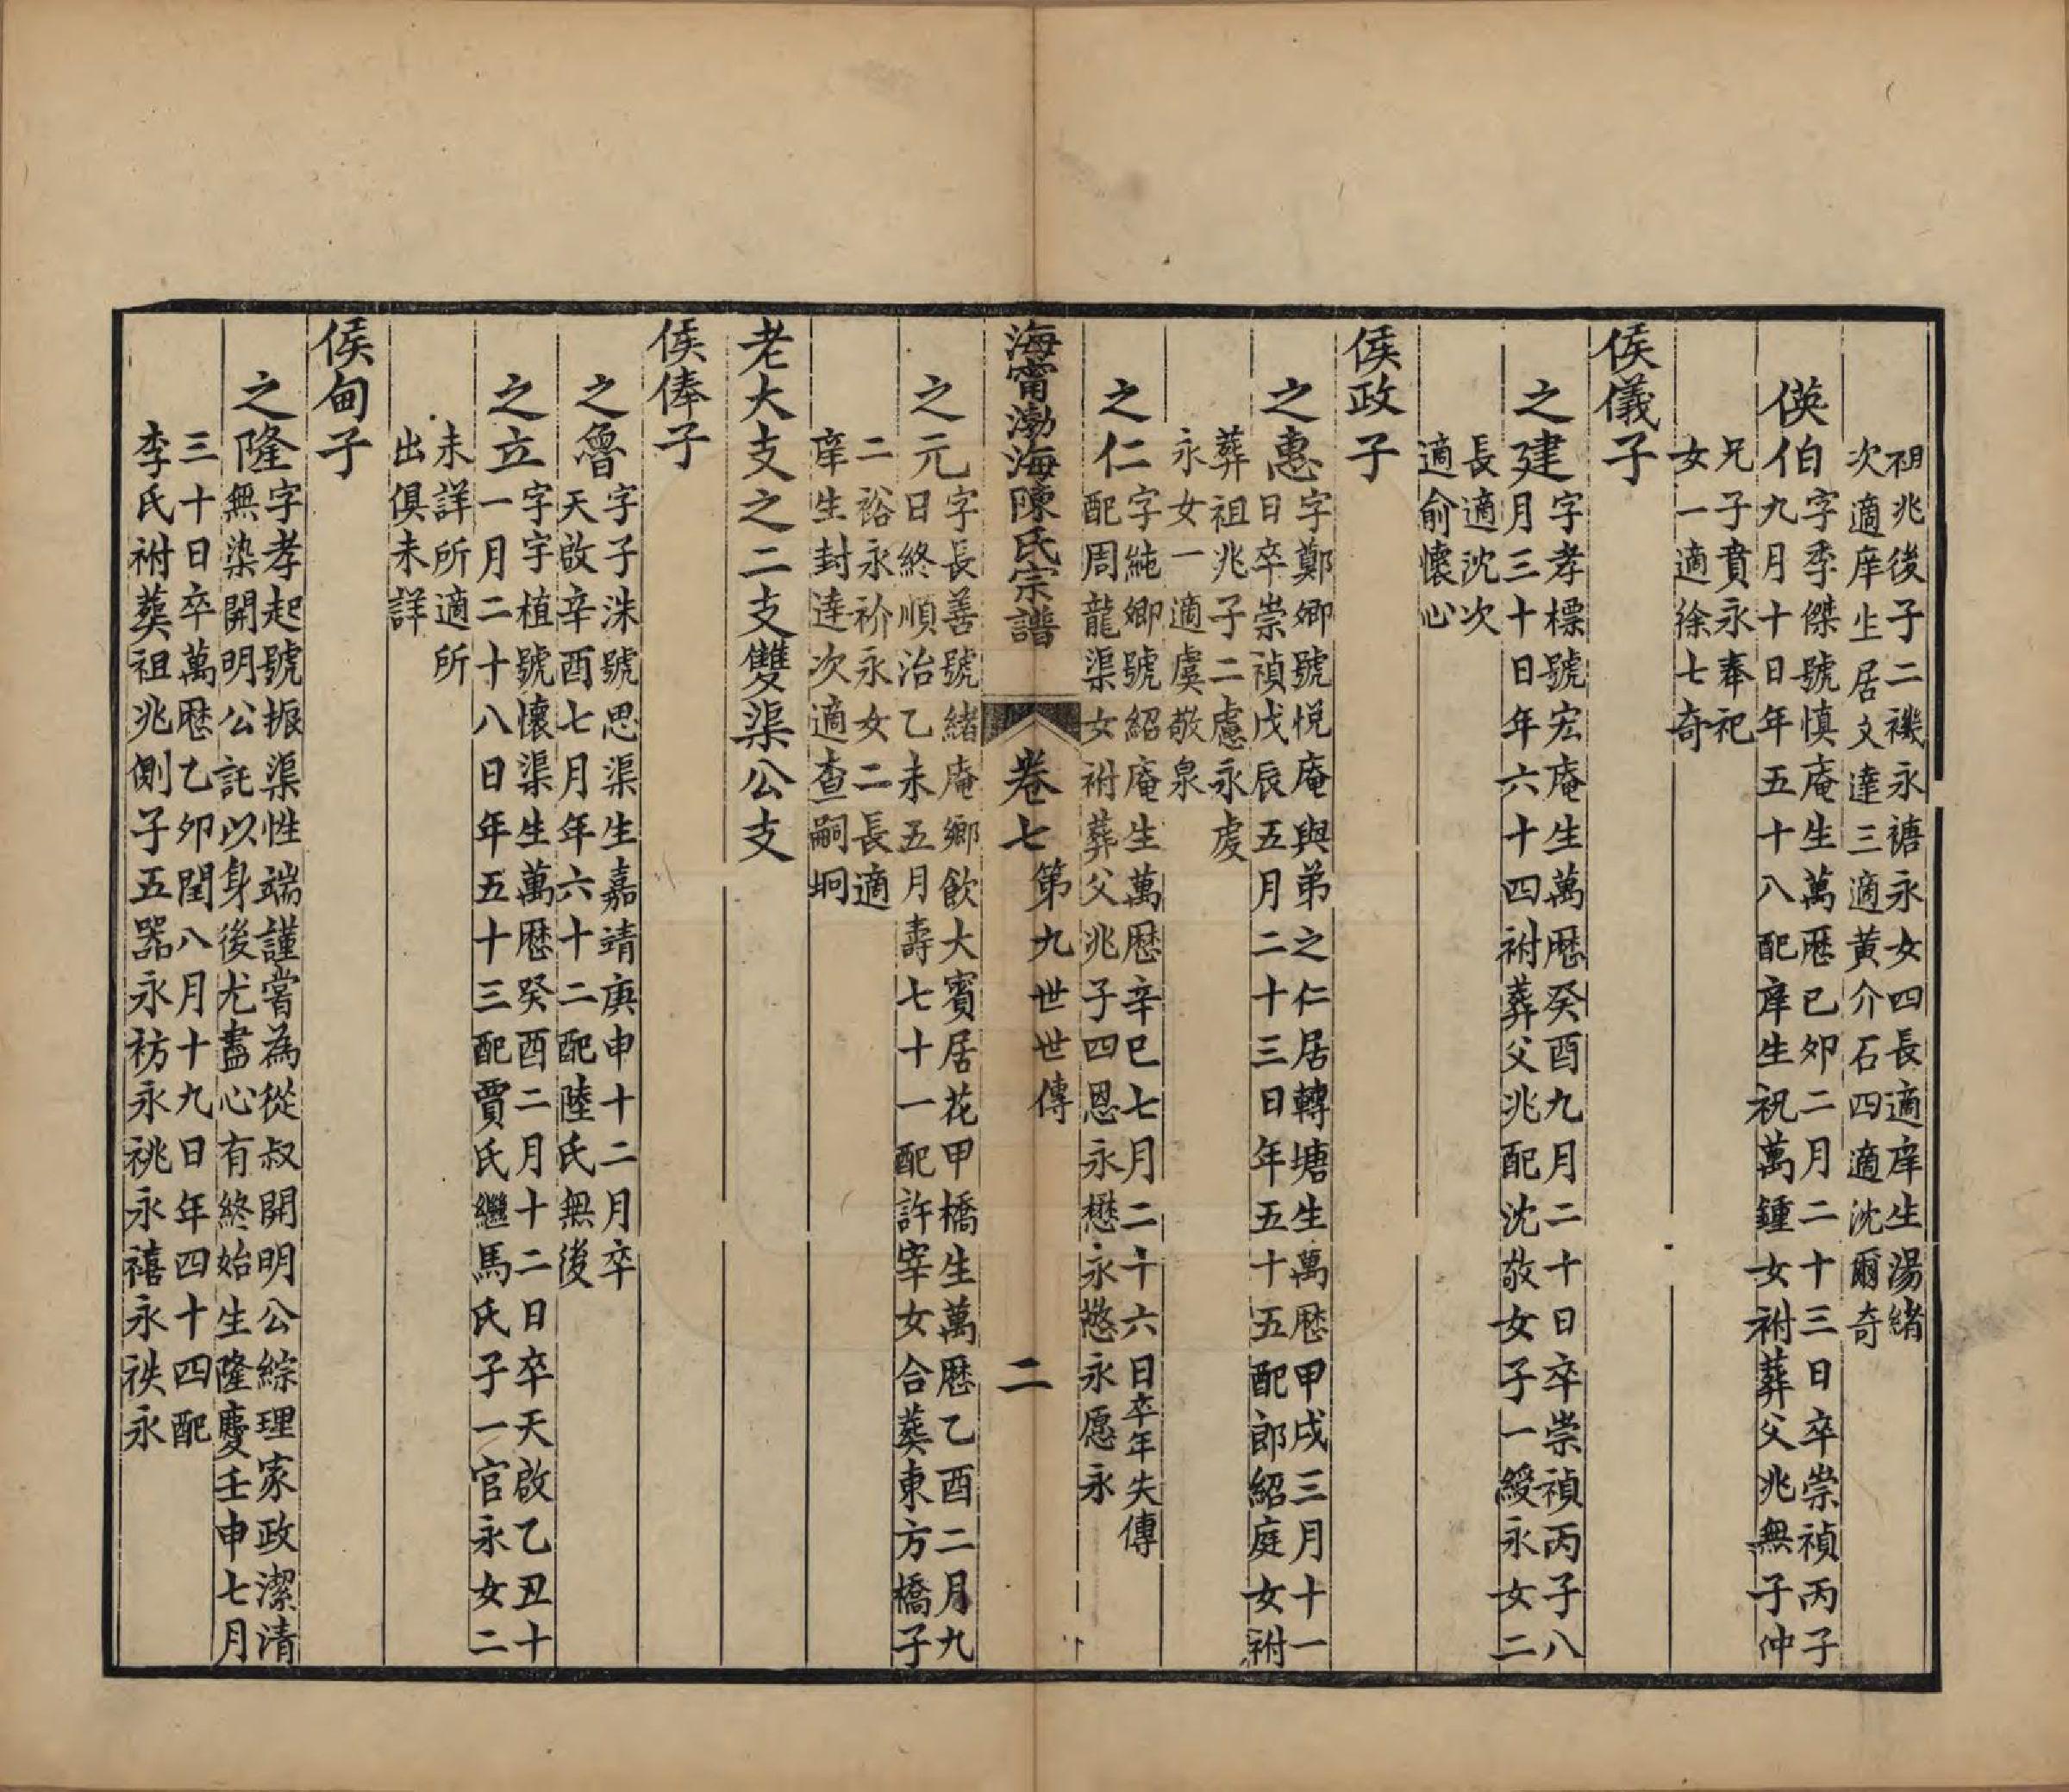 祖兆後子二禨永禟永女四長適庠生湯緒
次適庠生居文達三適黃介石四適沈爾奇
僙伯
字季傑號慎庵生萬厯己夘二月二十三日卒崇禎丙子
九月十日年五十八配庠生祝萬鍾女祔葬父兆無子仲
兄子賁永奉祀
女一適徐七奇
侯儀子
之建
字孝標號宏庵生萬厯癸酉九月二十日卒崇禎丙子八
月三十日年六十四祔葬父兆配沈敬女子一綬永女二
長適沈次
適俞懷心
侯政子
之惠
字鄭卿號悅庵與弟之仁居轉塘生萬厯甲戌三月十一
日卒崇禎戊辰五月二十三日年五十五配郎紹庭女祔
葬祖兆子二慮永䖍
永女一適虞敬泉
之仁
字純卿號紹庵生萬厯辛巳七月二十六日卒年失傳
配周龍渠女祔葬父兆子四恩永懋永慜永愿永
海甯渤海陳氏宗譜
卷七
第九世世傳
二
之元
字長善號緒庵鄉飲大賓居花甲橋生萬厯乙酉二月九
日終順治乙未五月壽七十一配許宰女合葬東方橋子
二裕永衸永女二長適
庠生封達次適查嗣坰
老大支之二支雙渠公支
侯俸子
之魯
字子洙號思渠生嘉靖庚申十二月卒
天啟辛酉七月年六十二配陸氏無後
之立
字宇植號懷渠生萬厯癸酉二月十二日卒天啟乙丑十
一月二十八日年五十三配賈氏繼馬氏子一官永女二
未詳所適所
出俱未詳
侯甸子
之隆
字孝起號振渠性端謹嘗為從叔開明公綜理家政潔清
無染開明公託以身後尤盡心有終始生隆慶壬申七月
三十日卒萬厯乙夘閏八月十九日年四十四配
李氏祔葬祖兆側子五器永祊永祧永禧永祑永